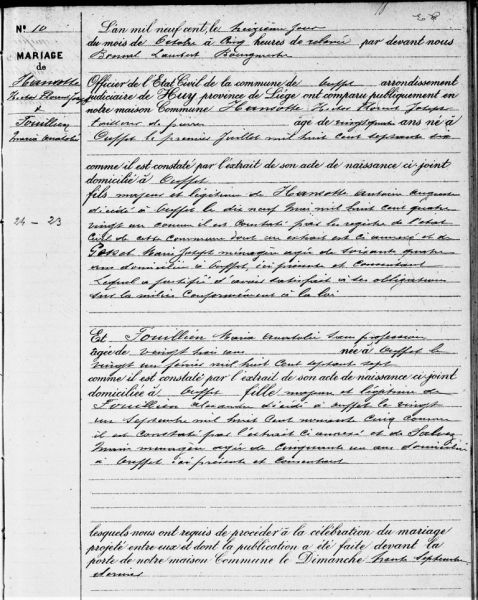 N° 10
MARIAGE
de
Hamotte
&
Fouillien
Maria Anatalie
24 - 23
L'an mil neuf cent, le treizième jour
du mois de Octobre à Cinq heures de relevée par devant nous
Bonsal Laurent Bourgmestre
Officier de l'État Civil de la commune de Ouffet arrondissement
judiciaire de Huy, province de Liège ont comparu publiquement en
notre maison Commune Hamotte Victor Florent Joseph
tailleur de pierres âgé de vingt quatre ans né à
Ouffet le premier Juillet mil huit cent septante six
comme il est constaté par l'extrait de son acte de naissance ci-joint
domicilié à Ouffet
fils majeur et légitime de Hamotte Antoine Auguste
décédé à Ouffet le dix neuf Mai mil huit cent quatre
vingt un comme il est constaté par le registre de l'état
Civil de cette commune dont un extrait est ci annexé et de
Marie Joseph ménagère agée de soixante quatre
ans domiciliée à Ouffet, ici présente et consentant
Lequel a justifié avoir satisfait à ses obligations
sur la milice Conformément à la loi
Et Fouillien Maria Anatalie sans profession
agée de vingt trois ans née à Ouffet le
vingt un février mil huit cent septante sept
comme il est constaté par l'extrait de son acte de naissance ci-joint
domiciliée à Ouffet fille majeure et légitime de
Fouillien Alexandre décédé à Ouffet le vingt
un Septembre mil huit cent nonante cinq comme
il est constaté par l'extrait ci annexé et de
Marie ménagère agée de cinquante un ans domiciliée
à Ouffet ici présente et consentant
lesquels nous ont requis de procéder à la célébration du mariage
projeté entre eux et dont la publication a été faite devant la
porte de notre maison Commune le Dimanche trente Septembre
dernier